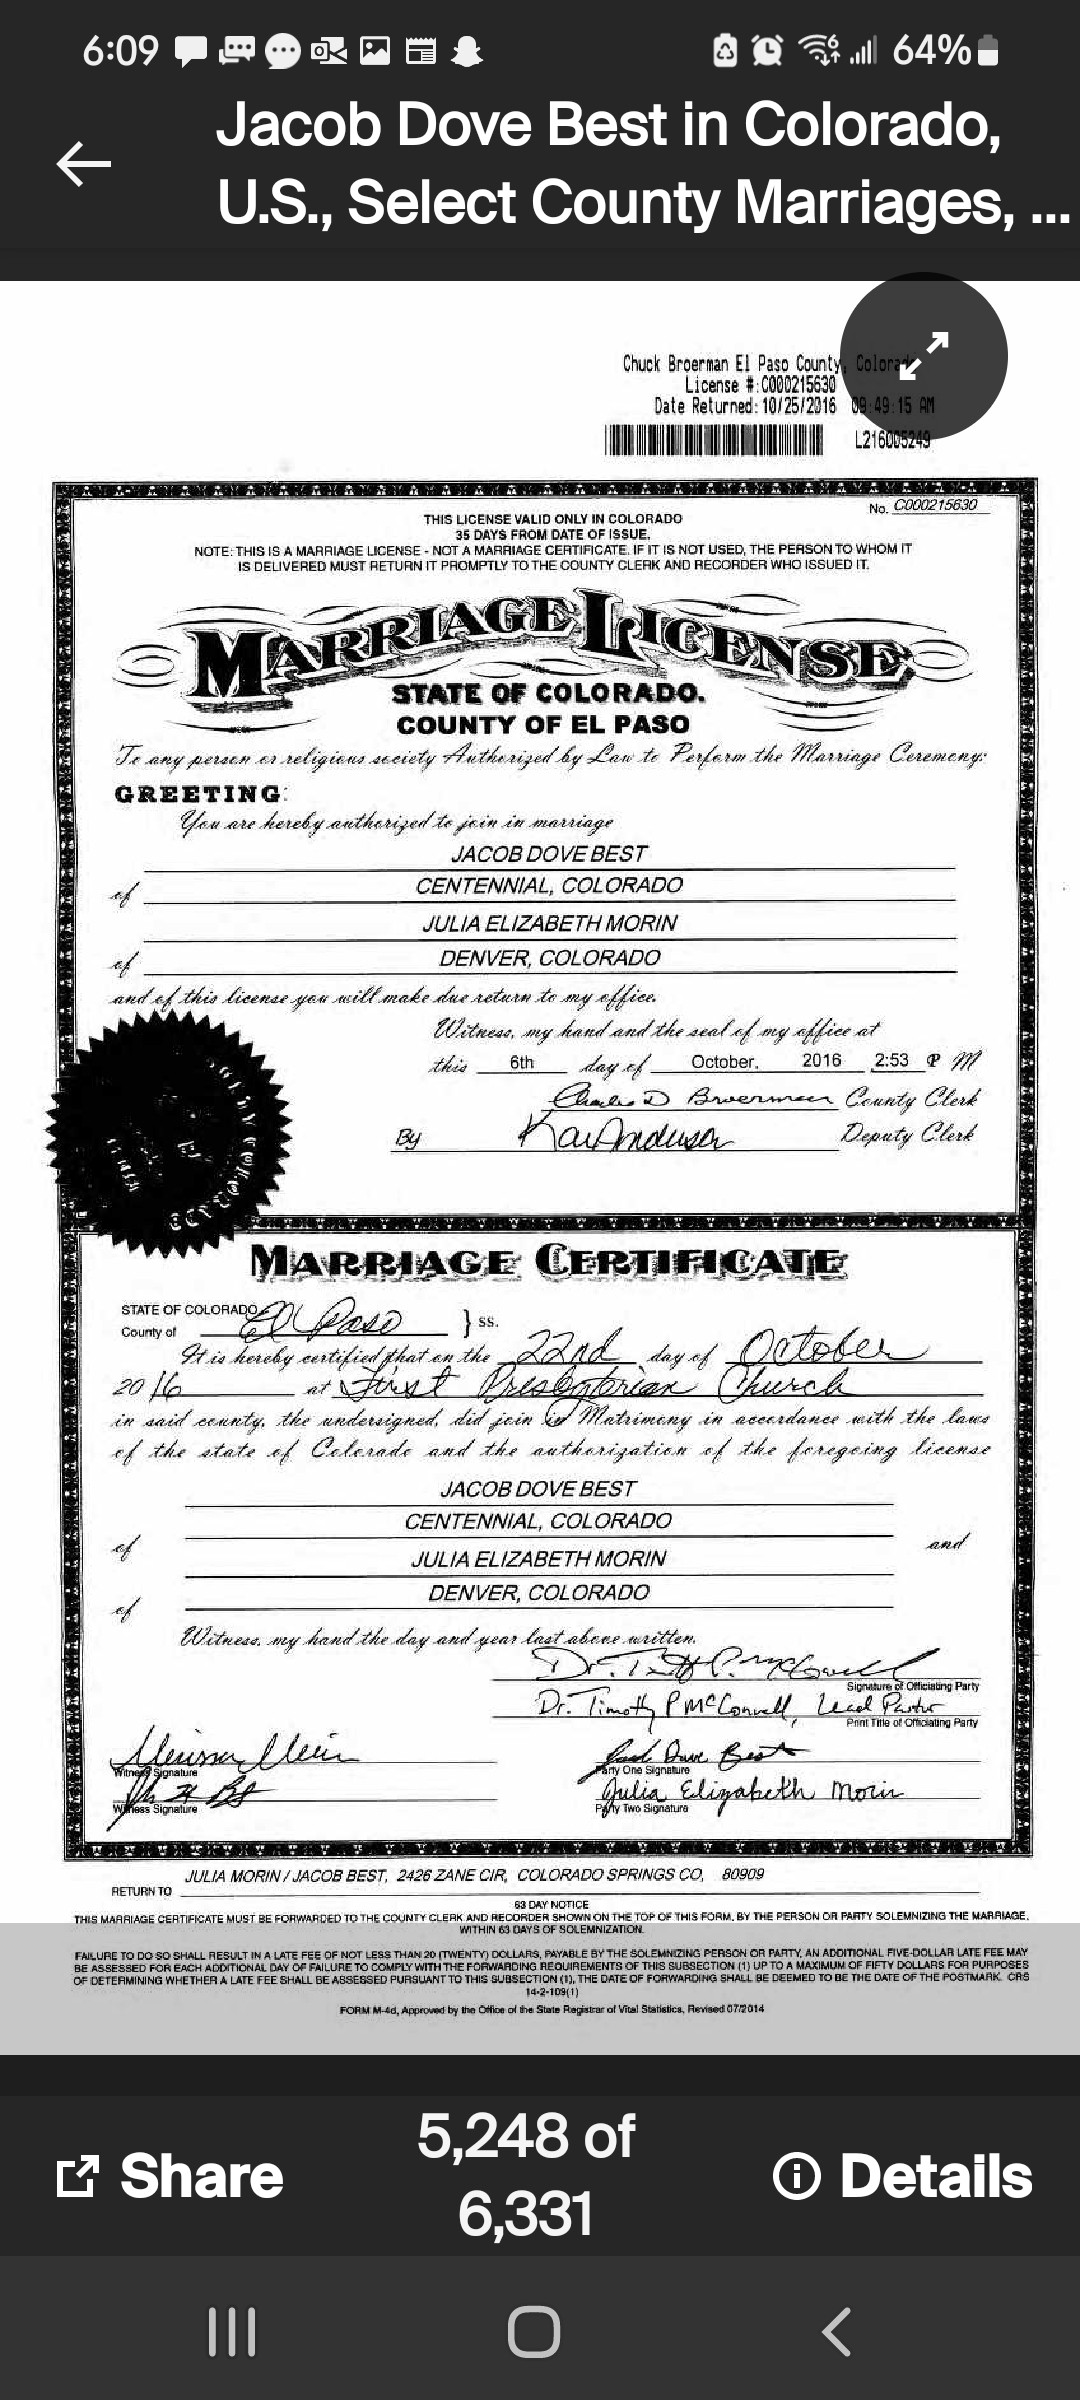 6:09 64%
Jacob Dove Best in Colorado,
U.S., Select County Marriages, ...
Chuck Broerman El Paso County, Colorado
License #:C000215630
Date Returned:10/25/2016 09:49:15 AM
L216005249
No. C000215630
THIS LICENSE VALID ONLY IN COLORADO
35 DAYS FROM DATE OF ISSUE.
NOTE: THIS IS A MARRIAGE LICENSE - NOT A MARRIAGE CERTIFICATE. IF IT IS NOT USED, THE PERSON TO WHOM IT
IS DELIVERED MUST RETURN IT PROMPTLY TO THE COUNTY CLERK AND RECORDER WHO ISSUED IT.
MARRIAGE LICENSE
STATE OF COLORADO.
COUNTY OF EL PASO
To any person or religious society Authorized by Law to Perform the Marriage Ceremony:
GREETING:
You are hereby authorized to join in marriage
JACOB DOVE BEST
of CENTENNIAL, COLORADO
JULIA ELIZABETH MORIN
of DENVER, COLORADO
and of this license you will make due return to my office.
Witness, my hand and the seal of my office at
this 6th day of October, 2016 2:53 P M
Charles D Broerman County Clerk
By Deputy Clerk
MARRIAGE CERTIFICATE
STATE OF COLORADO
County of El Paso } ss.
It is hereby certified that on the 22nd day of October
2016 at First Presbyterian Church
in said county, the undersigned, did join in Matrimony in accordance with the laws
of the state of Colorado and the authorization of the foregoing license
JACOB DOVE BEST
of CENTENNIAL, COLORADO and
JULIA ELIZABETH MORIN
of DENVER, COLORADO
Witness, my hand the day and year last above written.
Signature of Officiating Party
Dr. Timothy P McConnell, Lead Pastor
Print Title of Officiating Party
Witness Signature
Jacob Dove Best
Party One Signature
Witness Signature
Julia Elizabeth Morin
Party Two Signature
JULIA MORIN / JACOB BEST, 2426 ZANE CIR, COLORADO SPRINGS CO, 80909
RETURN TO
63 DAY NOTICE
THIS MARRIAGE CERTIFICATE MUST BE FORWARDED TO THE COUNTY CLERK AND RECORDER SHOWN ON THE TOP OF THIS FORM, BY THE PERSON OR PARTY SOLEMNIZING THE MARRIAGE,
WITHIN 63 DAYS OF SOLEMNIZATION.
FAILURE TO DO SO SHALL RESULT IN A LATE FEE OF NOT LESS THAN 20 (TWENTY) DOLLARS, PAYABLE BY THE SOLEMNIZING PERSON OR PARTY, AN ADDITIONAL FIVE-DOLLAR LATE FEE MAY
BE ASSESSED FOR EACH ADDITIONAL DAY OF FAILURE TO COMPLY WITH THE FORWARDING REQUIREMENTS OF THIS SUBSECTION (1) UP TO A MAXIMUM OF FIFTY DOLLARS FOR PURPOSES
OF DETERMINING WHETHER A LATE FEE SHALL BE ASSESSED PURSUANT TO THIS SUBSECTION (1), THE DATE OF FORWARDING SHALL BE DEEMED TO BE THE DATE OF THE POSTMARK. CRS
14-2-109(1)
FORM M-4d, Approved by the Office of the State Registrar of Vital Statistics, Revised 07/2014
Share
5,248 of
6,331
Details